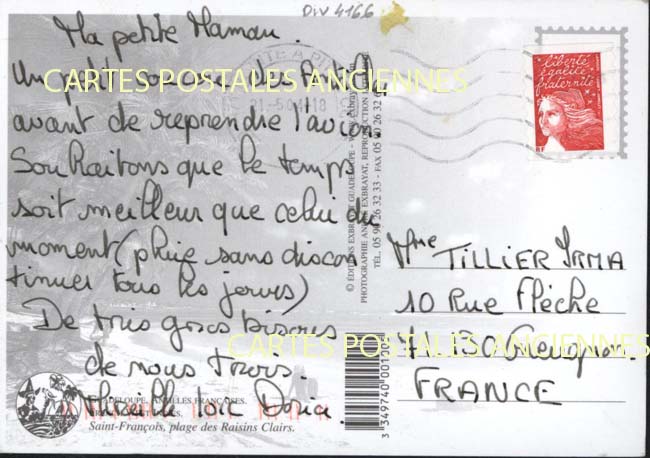 DIV 4166
Ma petite Maman.
Un petit des Antilles
CARTES POSTALES ANCIENNES
avant de reprendre l'avion.
Souhaitons que le temps
soit meilleur que celui du
moment (pluie sans discon
tinuer tous les jours)
De très gros bisous
de nous trois.
Loïc Doria.
liberté
égalité
fraternité
21-5 18
© ÉDITIONS EXBRAYAT GUADELOUPE - EXBRAYAT
PHOTOGRAPHIE ANDRÉ EXBRAYAT, REPRODUCTION
TÉL. 05 90 26 32 33 - FAX 05 90 26 32
Mme TILLIER IRMA
10 Rue Flèche
CARTES POSTALES ANCIENNES
FRANCE
3 349740 00120
GUADELOUPE, ANTILLES FRANÇAISES.
Saint-François, plage des Raisins Clairs.